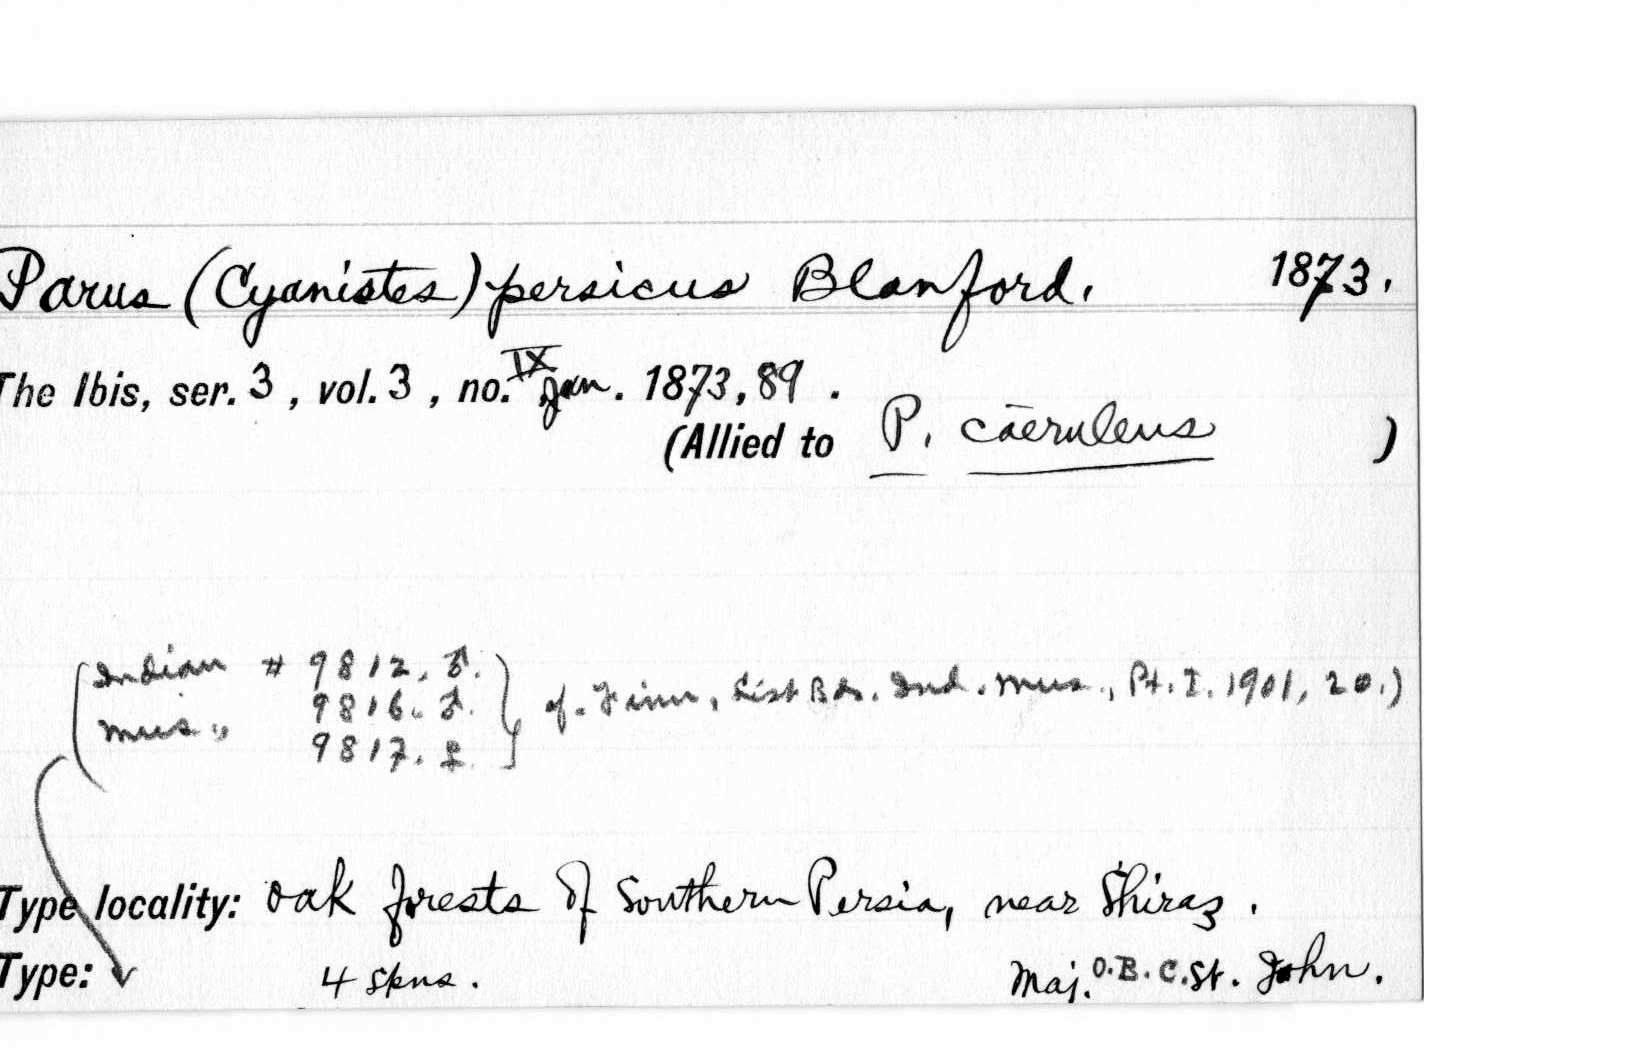 Parus (Cyanistes) persicus Blanford. 1873.
The Ibis, ser. 3, vol. 3, no. IX Jan. 1873, 89.
(Allied to P. cāeruleus)
(Indian # 9812. ♂.
9816. ♂. } cf. Finn, List Bds. Ind. Mus., Pt. I. 1901, 20.)
Mus.,
9817. ♀.
Type locality: oak forests of Southern Persia, near Shiraz.
Type: 4 spns. Maj. O.B.C. St. John.